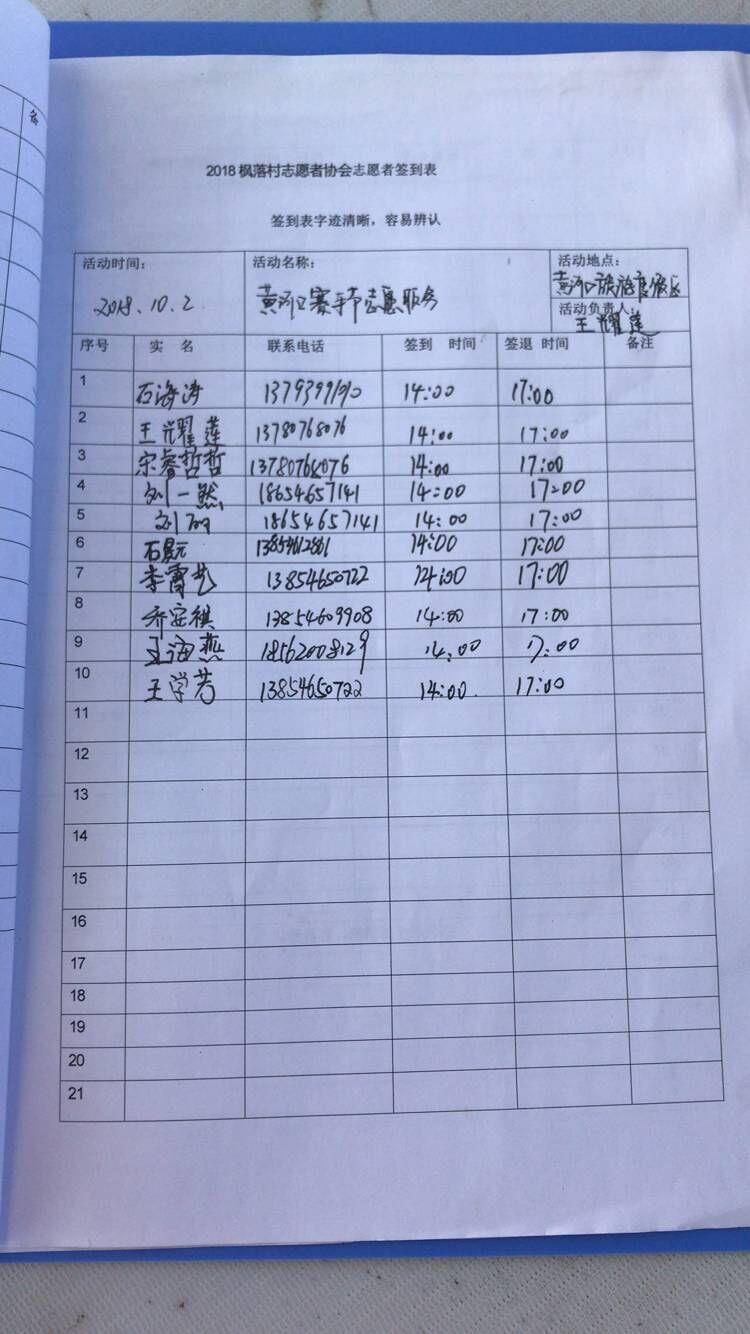 备
2018 枫落村志愿者协会志愿者签到表
签到表字迹清晰，容易辨认
活动时间： 活动名称： 活动地点：
2018.10.2 黄河口 志愿服务 黄河口旅游度假区
活动负责人：
王耀莲
序号 实 名 联系电话 签到 时间 签退 时间 备注
1 石海涛 14:00 17:00
2 王耀莲 13780768076 14:00 17:00
3 宋睿哲哲 13780768076 14:00 17:00
4 刘一然 18654657141 14:00 17:00
5 刘 18654657141 14:00 17:00
6 石 13854612861 14:00 17:00
7 李霄艺 13854650722 14:00 17:00
8 乔安祺 13854609908 14:00 17:00
9 王海燕 18562008129 14:00 17:00
10 王学芳 13854650722 14:00 17:00
11
12
13
14
15
16
17
18
19
20
21